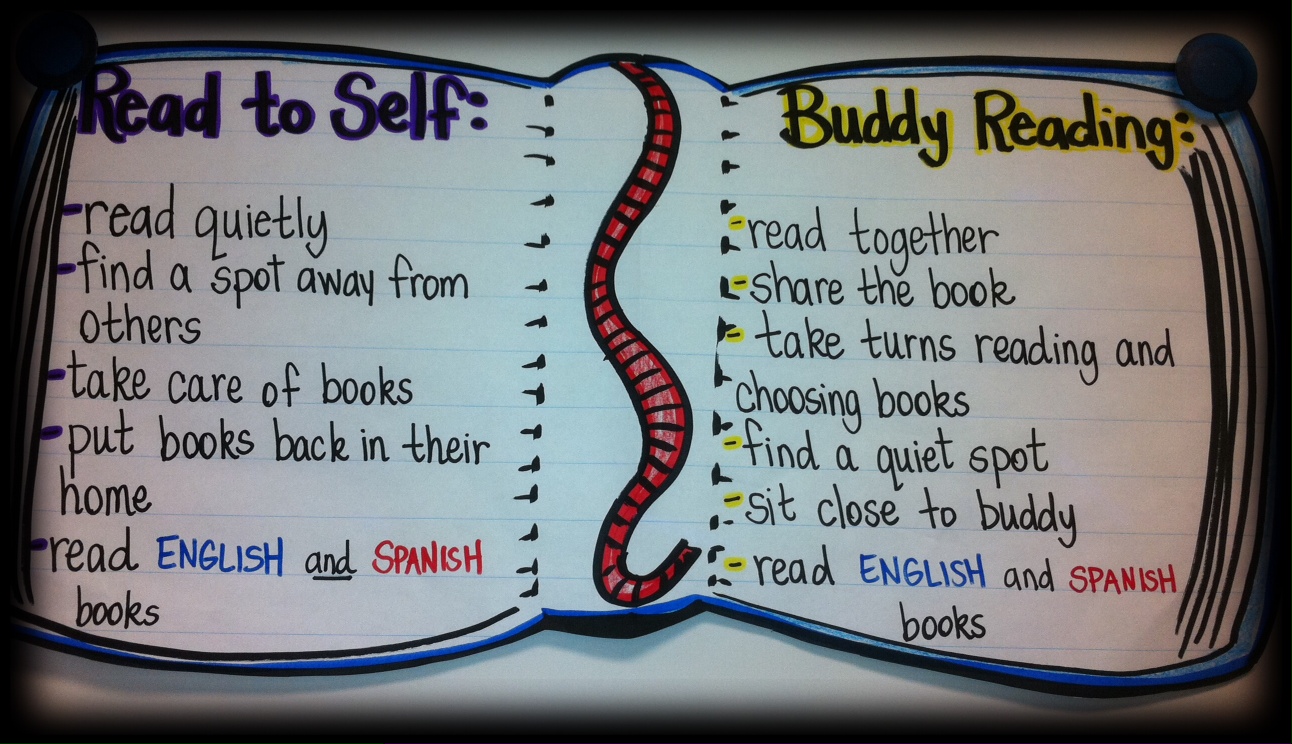 Read to Self:
-read quietly
-find a spot away from
others
-take care of books
-put books back in their
home
-read ENGLISH and SPANISH
books
Buddy Reading:
-read together
-share the book
-take turns reading and
choosing books
-find a quiet spot
-sit close to buddy
-read ENGLISH and SPANISH
books